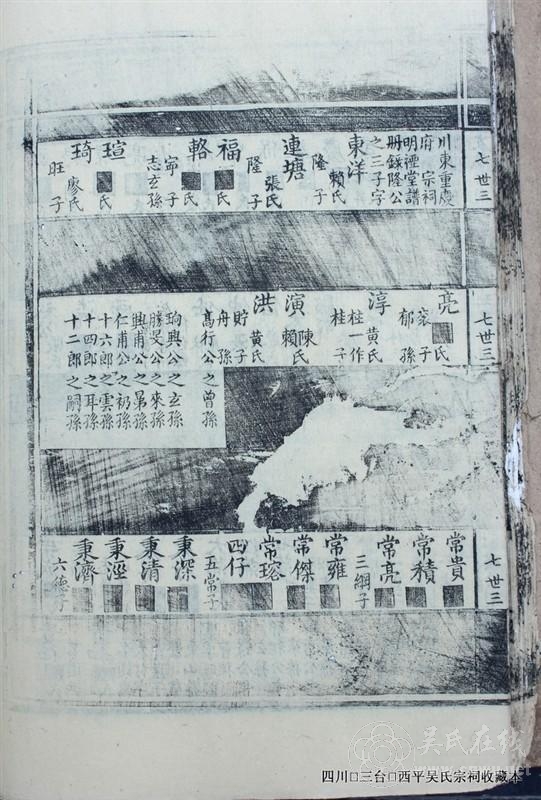 七世三
川東重慶
府宗祠
明禋堂譜
冊錄隆公
之三子字
東洋
賴氏
隆子
連塘
張氏
隆子
福
氏
輅
氏
寧子
志玄孫
瑄
氏
琦
廖氏
旺子
七世三
亮
氏
袞子
郁孫
淳
黃氏
桂一作
桂子
演
陳氏
賴氏
洪
黃氏
貯子
舟孫
高行公之曾孫
珦興公之玄孫
勝旻公之來孫
興甫公之晜孫
仁甫公之礽孫
十六郎之雲孫
十四郎之耳孫
十二郎之嗣孫
七世三
常貴
常積
常亮
三綱子
常雍
常傑
常瑢
四仔
五常子
秉深
秉清
秉涇
秉濟
六德子
吴氏在线
四川□三台□西平吴氏宗祠收藏本